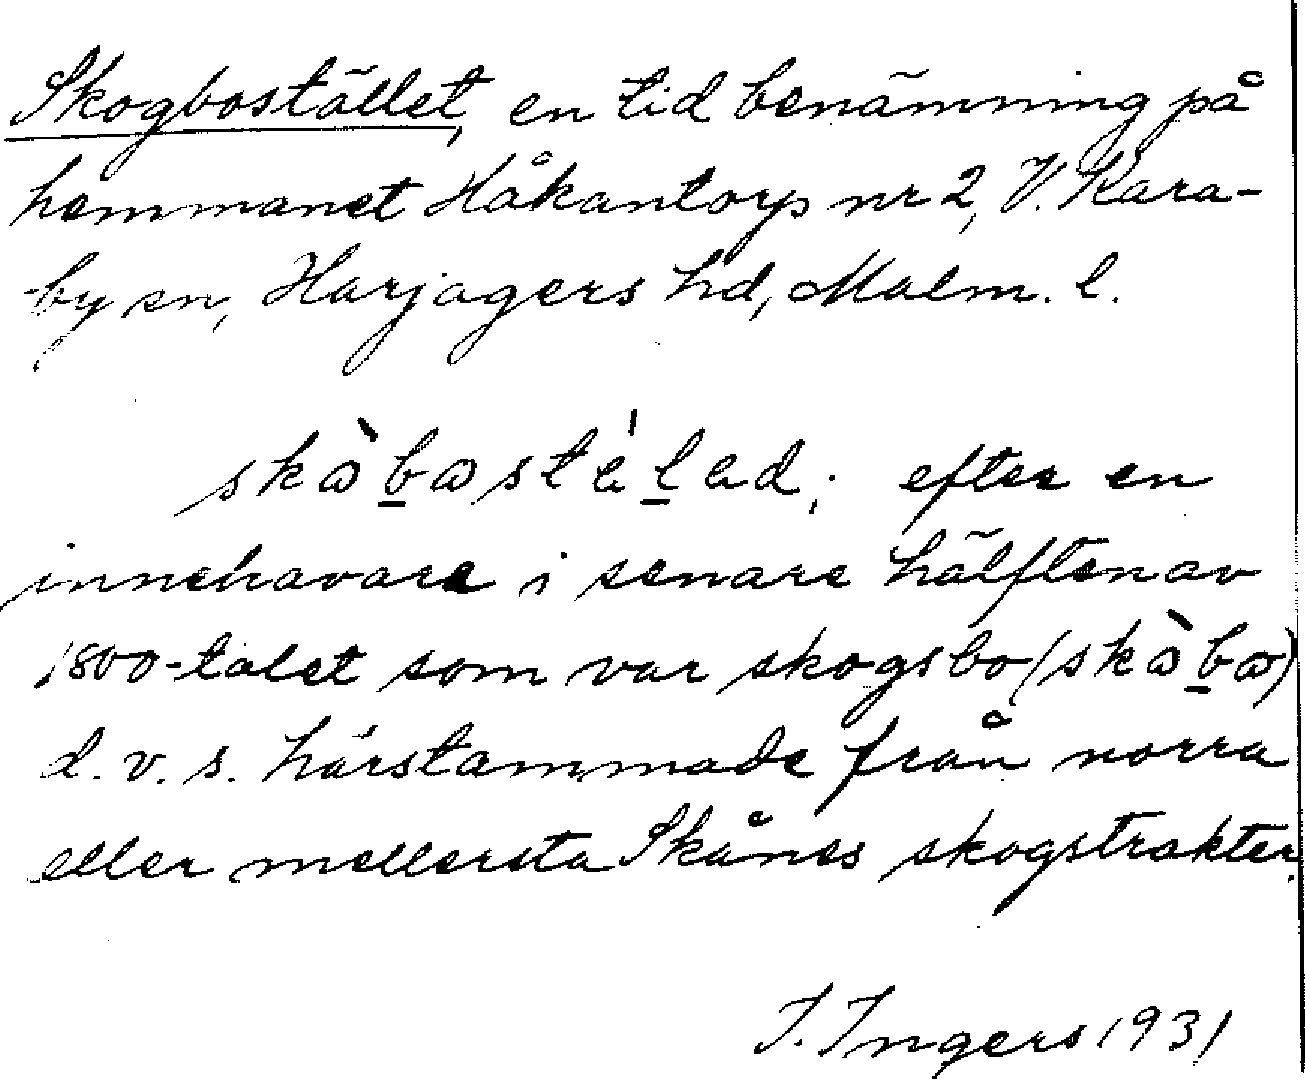 Skogbostället, en tid benämning på
hemmanet Håkantorp nr 2, V. Kara-
-by sn, Harjagers hd, Malm. l.
skòbostélad; efter en
innehavare i senare hälften av
1800-talet som var skogsbo (skòbo)
d. v. s. härstammade från norra
eller mellersta Skånes skogstrakter.
I. Ingers 1931